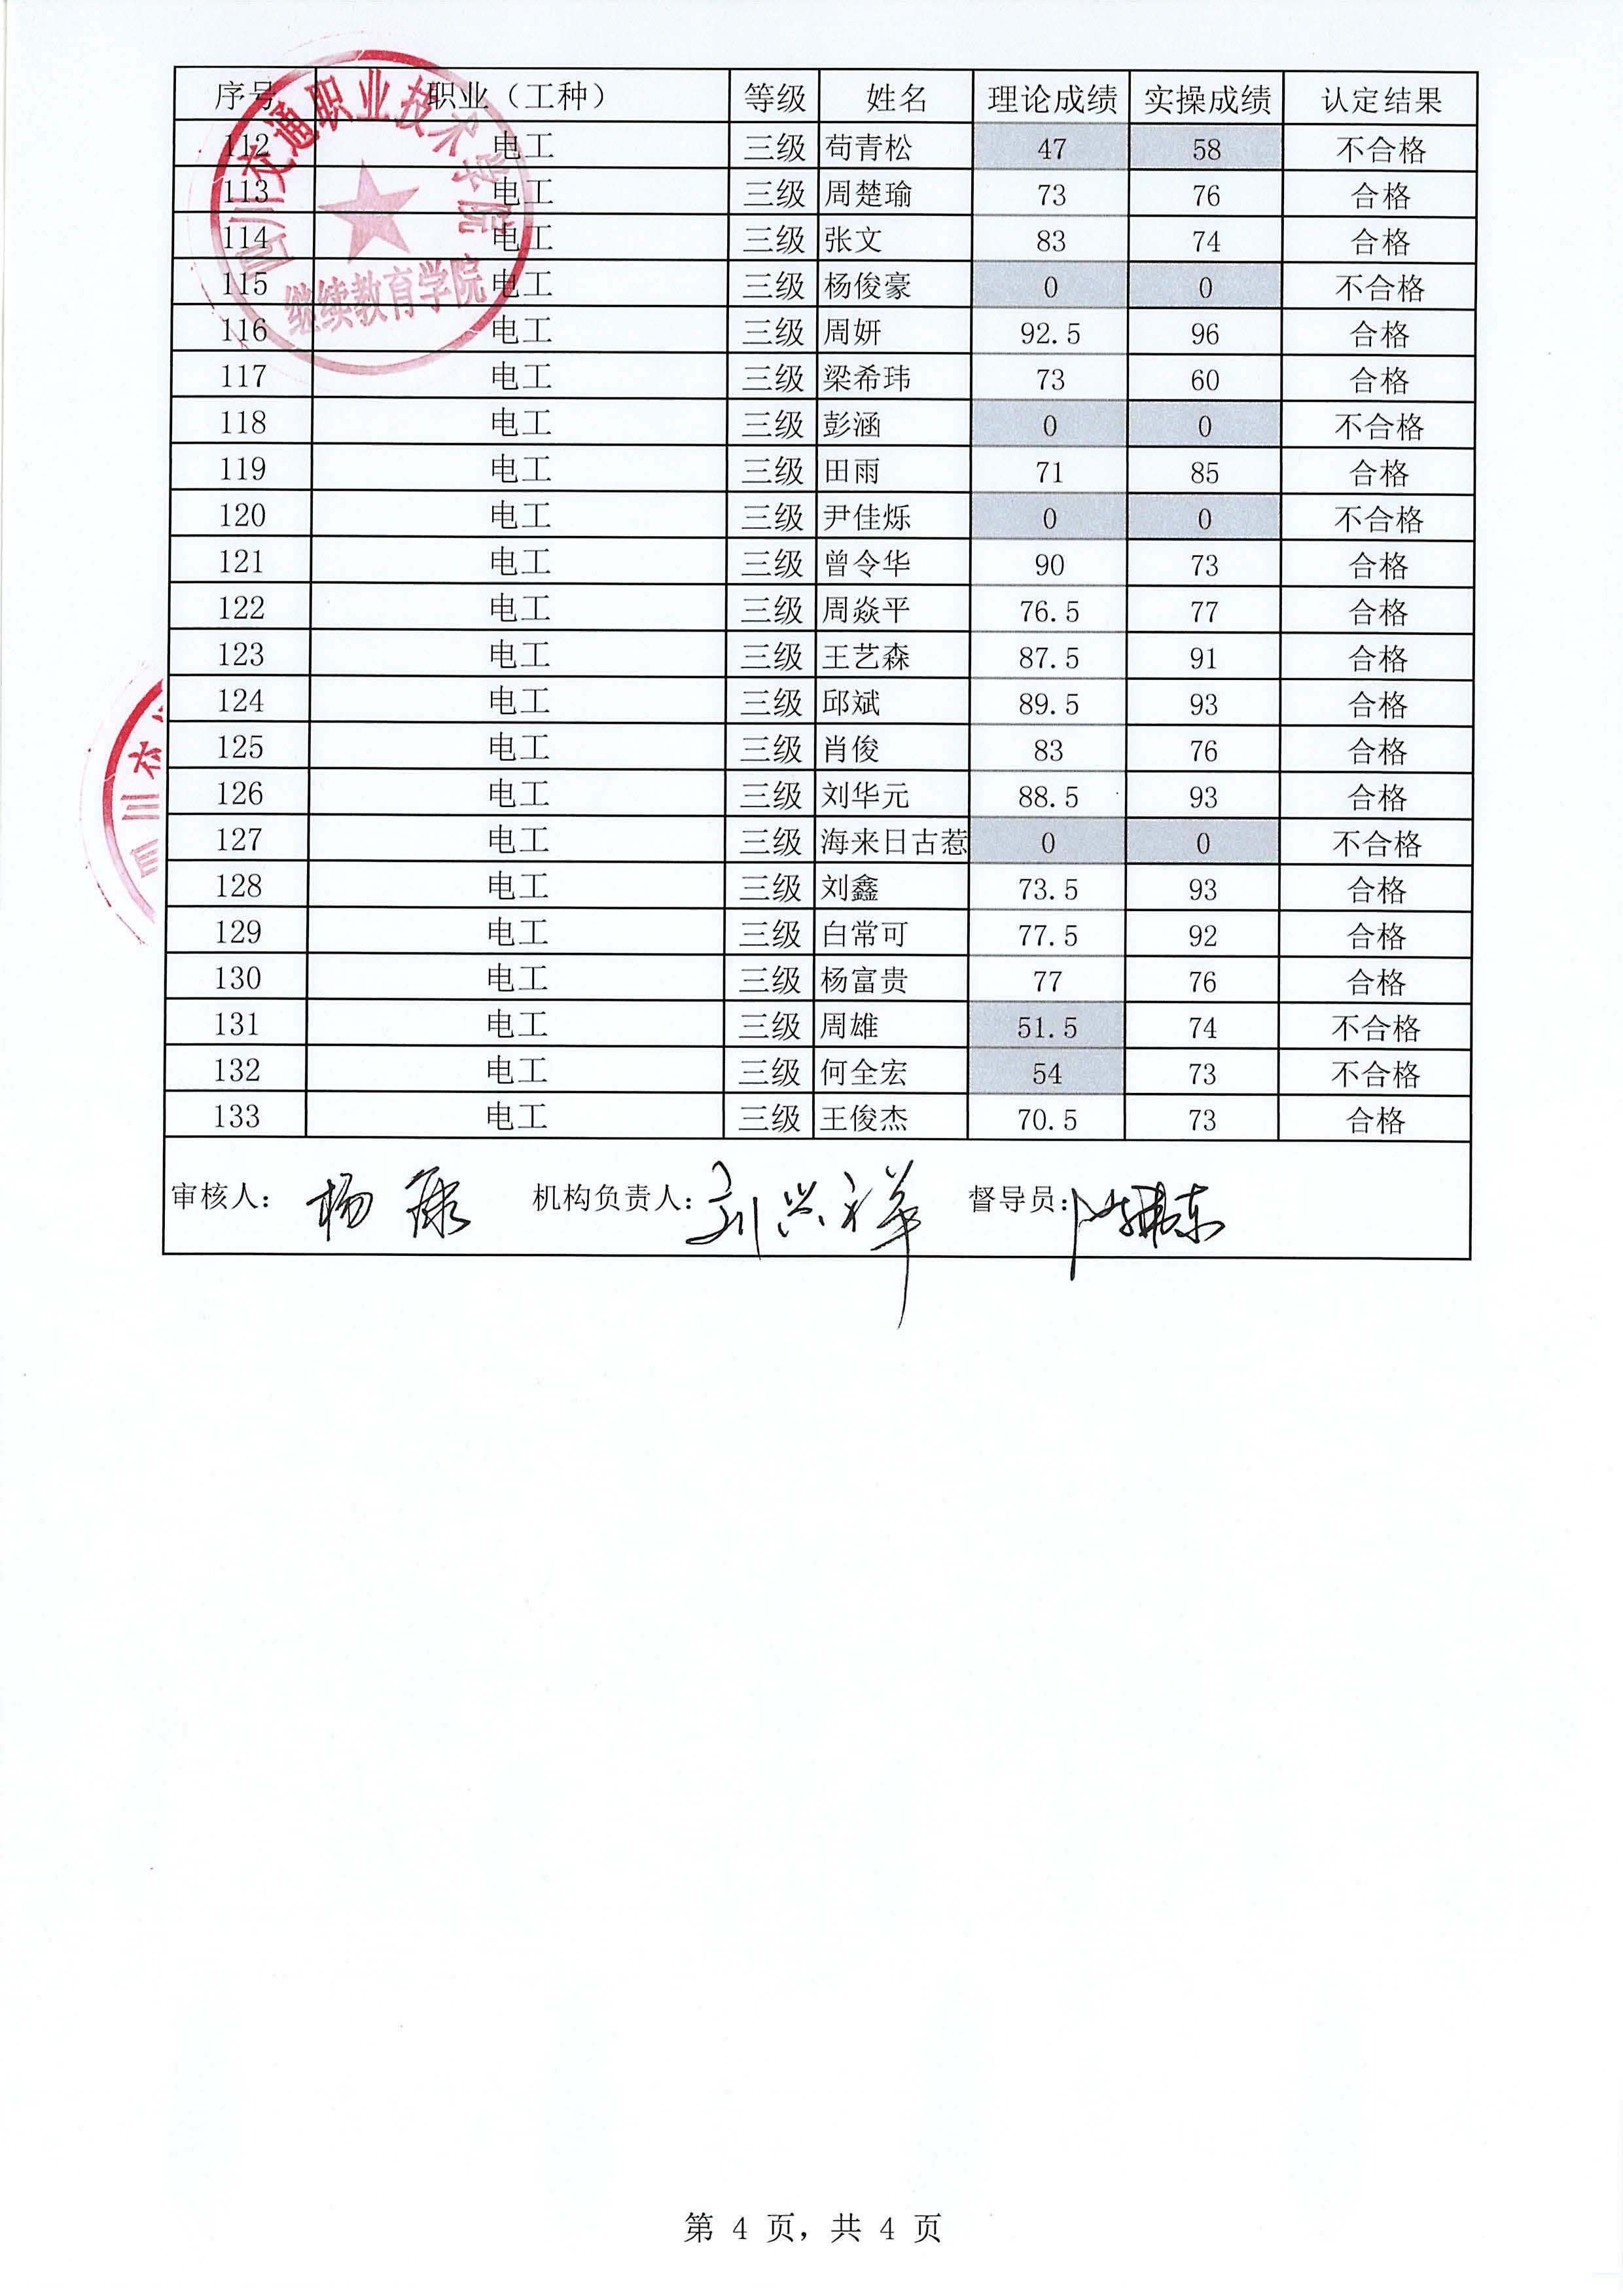 序号 职业（工种） 等级 姓名 理论成绩 实操成绩 认定结果
112 电工 三级 苟青松 47 58 不合格
113 电工 三级 周楚瑜 73 76 合格
114 电工 三级 张文 83 74 合格
115 电工 三级 杨俊豪 0 0 不合格
116 电工 三级 周妍 92.5 96 合格
117 电工 三级 梁希玮 73 60 合格
118 电工 三级 彭涵 0 0 不合格
119 电工 三级 田雨 71 85 合格
120 电工 三级 尹佳烁 0 0 不合格
121 电工 三级 曾令华 90 73 合格
122 电工 三级 周焱平 76.5 77 合格
123 电工 三级 王艺森 87.5 91 合格
124 电工 三级 邱斌 89.5 93 合格
125 电工 三级 肖俊 83 76 合格
126 电工 三级 刘华元 88.5 93 合格
127 电工 三级 海来日古惹 0 0 不合格
128 电工 三级 刘鑫 73.5 93 合格
129 电工 三级 白常可 77.5 92 合格
130 电工 三级 杨富贵 77 76 合格
131 电工 三级 周雄 51.5 74 不合格
132 电工 三级 何全宏 54 73 不合格
133 电工 三级 王俊杰 70.5 73 合格
审核人： 杨 机构负责人：刘兴祥 督导员：
四川交通职业技术学院
继续教育学院
第 4 页，共 4 页